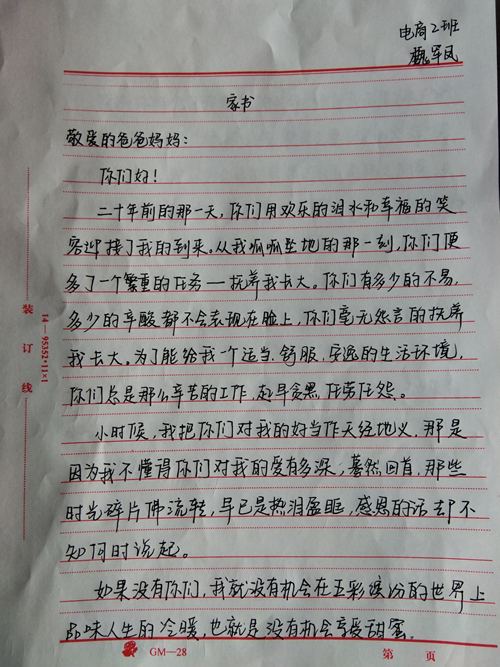 电商2班
魏军凤
家书
敬爱的爸爸妈妈:
你们好!
二十年前的那一天,你们用欢乐的泪水和幸福的笑
容迎接了我的到来。从我呱呱坠地的那一刻,你们便
多了一个繁重的任务—抚养我长大。你们有多少的不易,
多少的辛酸都不会表现在脸上,你们毫无怨言的抚养
我长大。为了能给我一个适当、舒服、安逸的生活环境,
你们总是那么辛苦的工作,起早贪黑、任劳任怨。
小时候,我把你们对我的好当作天经地义,那是
因为我不懂得你们对我的爱有多深,蓦然回首,那些
时光碎片佛流转,早已是热泪盈眶,感恩的话却不
知何时说起。
如果没有你们,我就没有机会在五彩缤纷的世界上
品味人生的冷暖,也就是没有机会享受甜蜜.
装订线
14—95352·11×1
GM—28
第 页